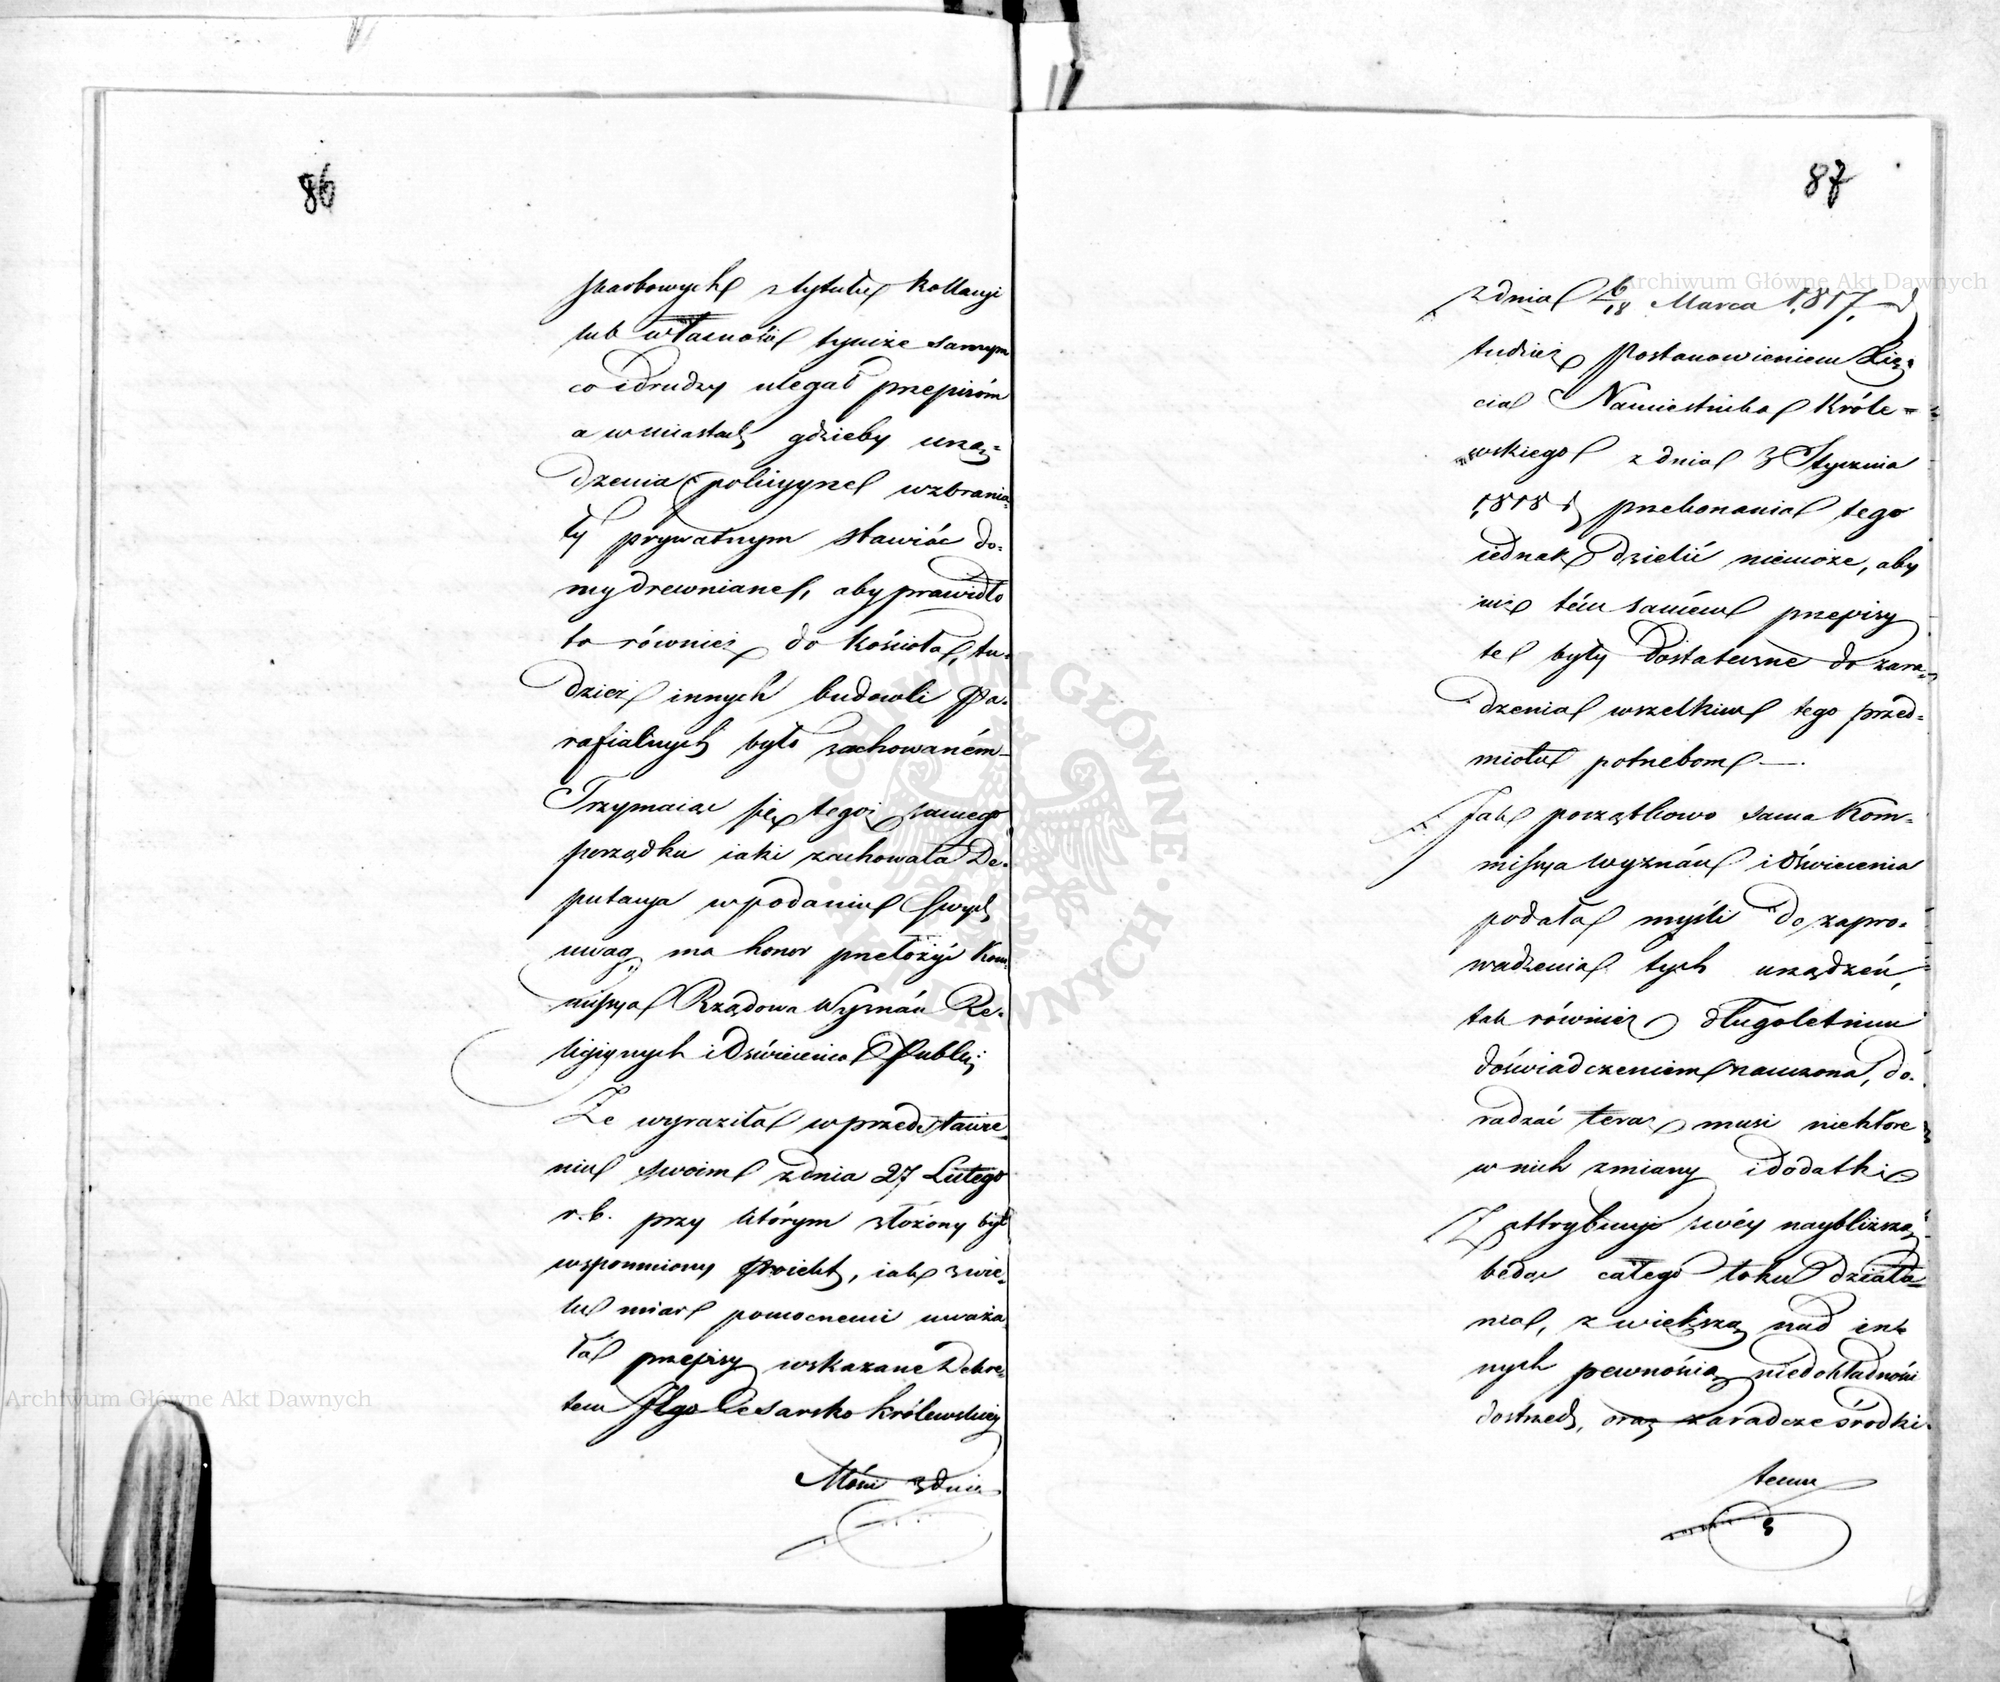 86
skarbowych z tytułu kollacyi
lub własności tymże samym
co i drudzy ulegał przepisóm
a w miastach gdzieby urzą=
dzenia policyyne wzbrania
ły prywatnym stawiać do=
my drewniane, aby prawidło
to również do kościoła, tu=
dzież innych budowli Pa=
rafialnych było zachowaném
Trzymaiąc się tegoż samego
porządku iaki zachowała De=
putacya w podaniu swych
uwag, ma honor przełożyć Kom
missya Rządowa Wyznań Re=
ligiynych i Oświecenia Publ:
Że wyraziła w przedstawie=
niu swoim z dnia 27 Lutego
r. b. przy którym złożony był
wspomniony Proiekt, iak z wie=
lu miar pomocnemi uważa
ła przepisy wskazane Dekre=
tem Jego Cesarsko Królewskiey
Mości z dnia
87
z dnia 6/18 Marca 1817. r
tudzież Postanowieniem Xię=
cia Namiestnika Króle=
wskiego z dnia 3 Stycznia
1818 r. przekonania tego
iednak dzielić niemoże, aby
iuż tém samém przepisy
te były dostateczne do zara=
dzenia wszelkim tego przed=
miotu potrzebom —.
Jak początkowo sama Kom=
missya Wyznań i Oświecenia
podała myśli do zapro=
wadzenia tych urządzeń,
tak również długoletniem
doświadczeniem nauczona, do=
radzać teraz musi niektóre
w nich zmiany i dodatki
Z attrybucyi swéy naybliższą
będąc całego toku działa=
nia, z większą nad in=
nych pewnością niedokładności
dostrzedz, oraz zaradcze środki
temu
Archiwum Główne Akt Dawnych
Archiwum Główne Akt Dawnych
ARCHIWUM GŁÓWNE AKT DAWNYCH